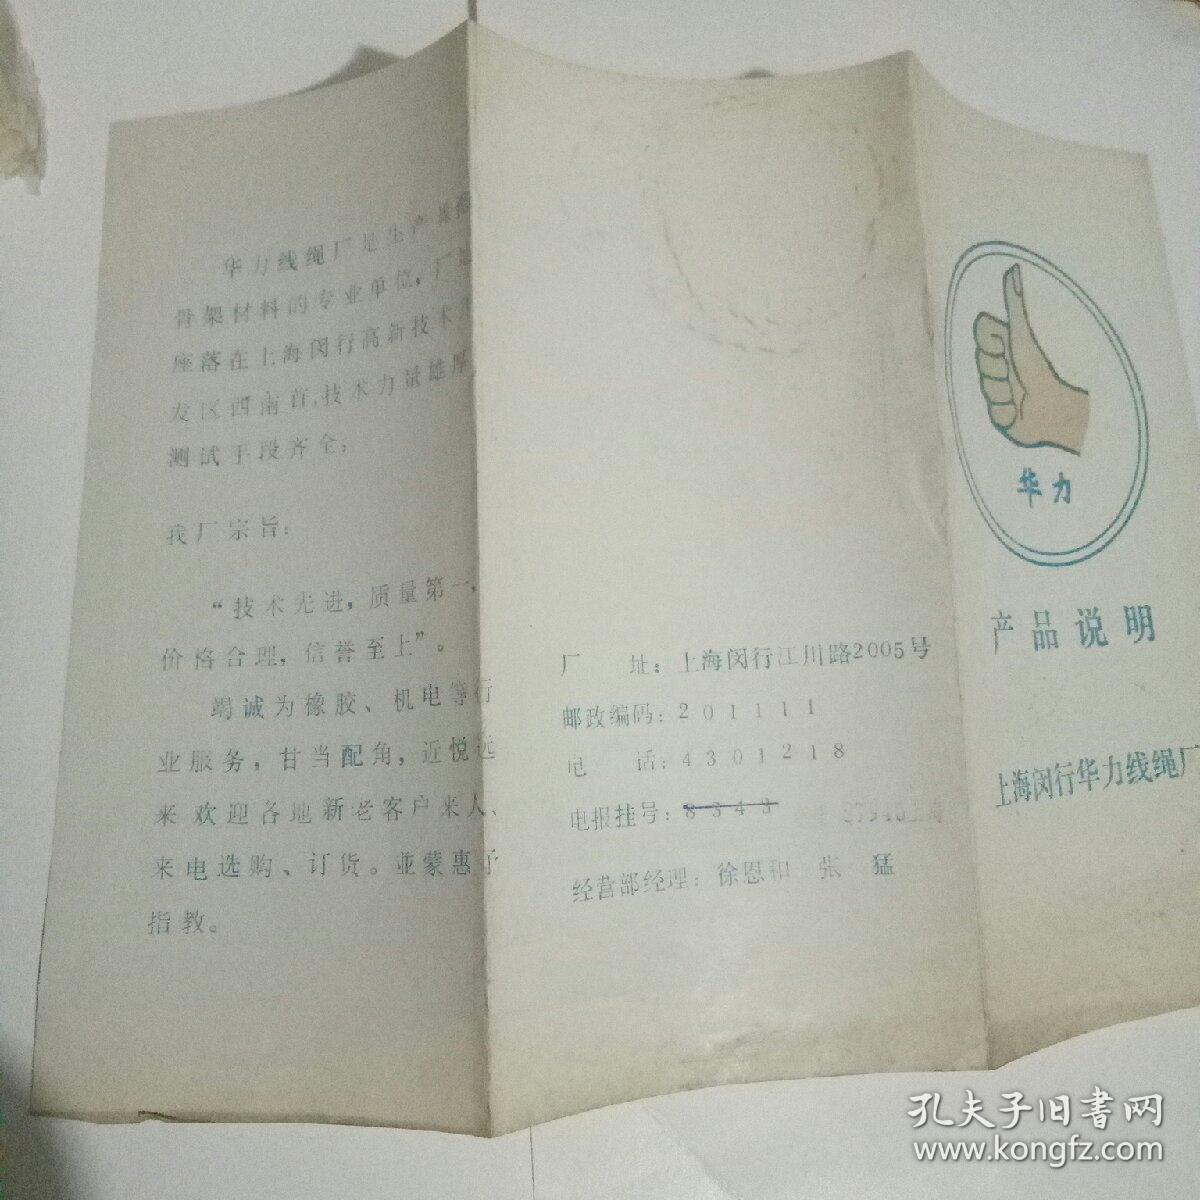 华力线绳厂是生产
骨架材料的专业单位，厂
座落在上海闵行高新技术
发区西南首，技术力量雄厚
测试手段齐全，
我厂宗旨：
“技术先进，质量第一，
价格合理，信誉至上”。
竭诚为橡胶、机电等行
业服务，甘当配角，近悦远
来欢迎各地新老客户来人、
来电选购、订货。並蒙惠予
指教。
厂 址：上海闵行江川路2005号
邮政编码：201111
电 话：4301218
电报挂号：8343
经营部经理：徐恩和 张 猛
华力
产品说明
上海闵行华力线绳厂
孔夫子旧书网
www.kongfz.com